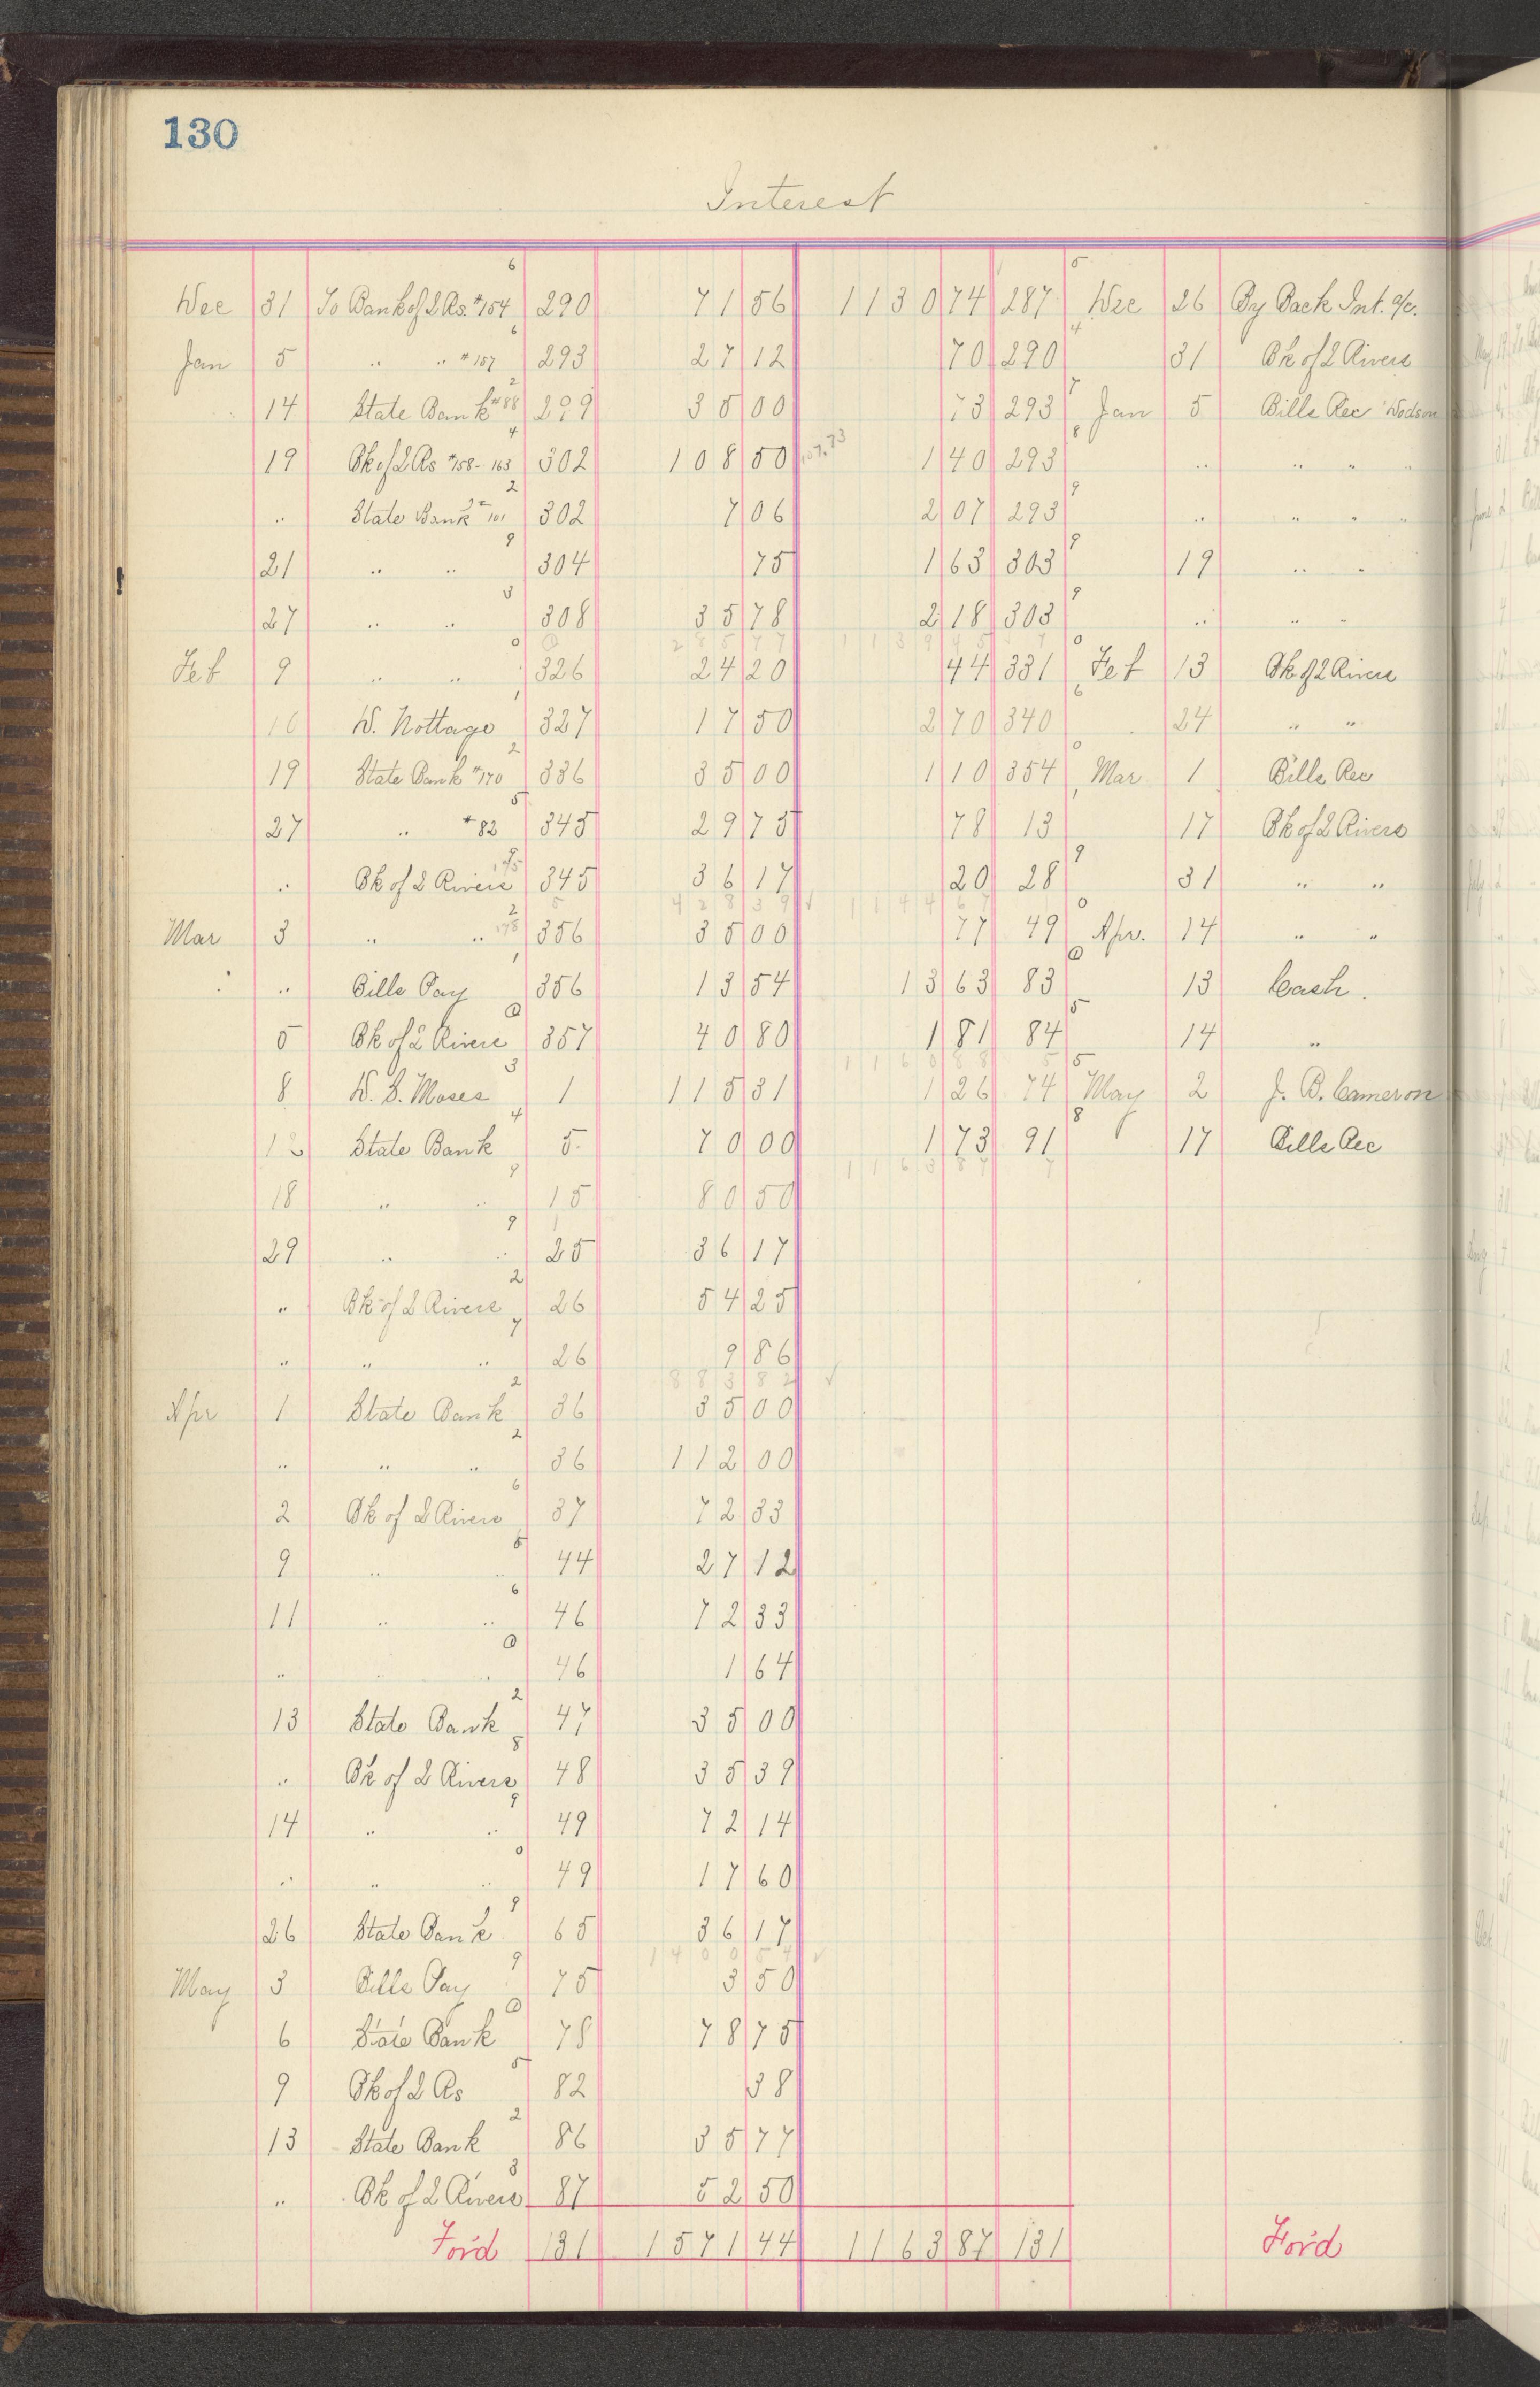 130
Interest
Dec 31 To Bank of 2 Rs. #154 290 71 56 1130 74 287 Dec 26 By Back Int. a/c.
Jan 5 " " #157 293 27 12 70 290 31 Bk of 2 Rivers
14 State Bank #88 299 35 00 73 293 Jan 5 Bills Rec Dodson
19 Bk of 2 Rs #158-163 302 108 50 107.73 1 40 293 " " " "
" State Bank #101 302 7 06 2 07 293 " " " "
21 " " 304 75 1 63 303 19 " "
27 " " 308 35 78 2 18 303 " " "
285 77 1139 45
Feb 9 " " 326 24 20 44 331 Feb 13 Bk of 2 Rivers
10 W. Nottage 327 17 50 2 70 340 24 " "
19 State Bank #170 336 35 00 1 10 354 Mar 1 Bills Rec
27 " #82 345 29 75 78 13 17 Bk of 2 Rivers
" Bk of 2 Rivers 175 345 36 17 20 28 31 " "
428 39 1144 67
Mar 3 " " 178 356 35 00 77 49 Apr. 14 " "
" Bills Pay 356 13 54 13 63 83 13 Cash.
5 Bk of 2 Rivers 357 40 80 1 81 84 14 "
1160 88
8 W. S. Moses 1 115 31 1 26 74 May 2 J. B. Cameron
12 State Bank 5 70 00 1 73 91 17 Bills Rec
1163 87
18 " " 15 80 50
29 " " 25 36 17
" Bk of 2 Rivers 26 54 25
" " " 26 9 86
883 82
Apr 1 State Bank 36 35 00
" " " 36 112 00
2 Bk of 2 Rivers 37 72 33
9 " " 44 27 12
11 " " 46 72 33
" " " 46 1 64
13 State Bank 47 35 00
" Bk of 2 Rivers 48 35 39
14 " " 49 72 14
" " " 49 17 60
26 State Bank 65 36 17
1400 54
May 3 Bills Pay 75 3 50
6 State Bank 78 78 75
9 Bk of 2 Rs 82 38
13 State Bank 86 35 77
" Bk of 2 Rivers 87 52 50
For'd 131 1571 44 1163 87 131 For'd